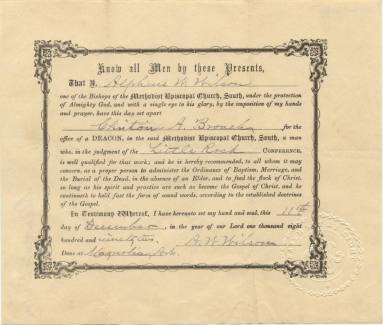 Know all Men by these Presents,
That I, Alpheus W. Wilson
one of the Bishops of the Methodist Episcopal Church, South, under the protection
of Almighty God, and with a single eye to his glory, by the imposition of my hands
and prayer, have this day set apart
Clinton A. for the
office of a DEACON, in the said Methodist Episcopal Church, South, a man
who, in the judgment of the Little Rock CONFERENCE,
is well qualified for that work; and he is hereby recommended, to all whom it may
concern, as a proper person to administer the Ordinances of Baptism, Marriage, and
the Burial of the Dead, in the absence of an Elder, and to feed the flock of Christ,
so long as his spirit and practice are such as become the Gospel of Christ, and he
continueth to hold fast the form of sound words, according to the established doctrines
of the Gospel.
In Testimony Whereof, I have hereunto set my hand and seal, this 11th
day of December in the year of our Lord one thousand eight
hundred and ninety two.
A. W. Wilson
Done at Magnolia, Ark.